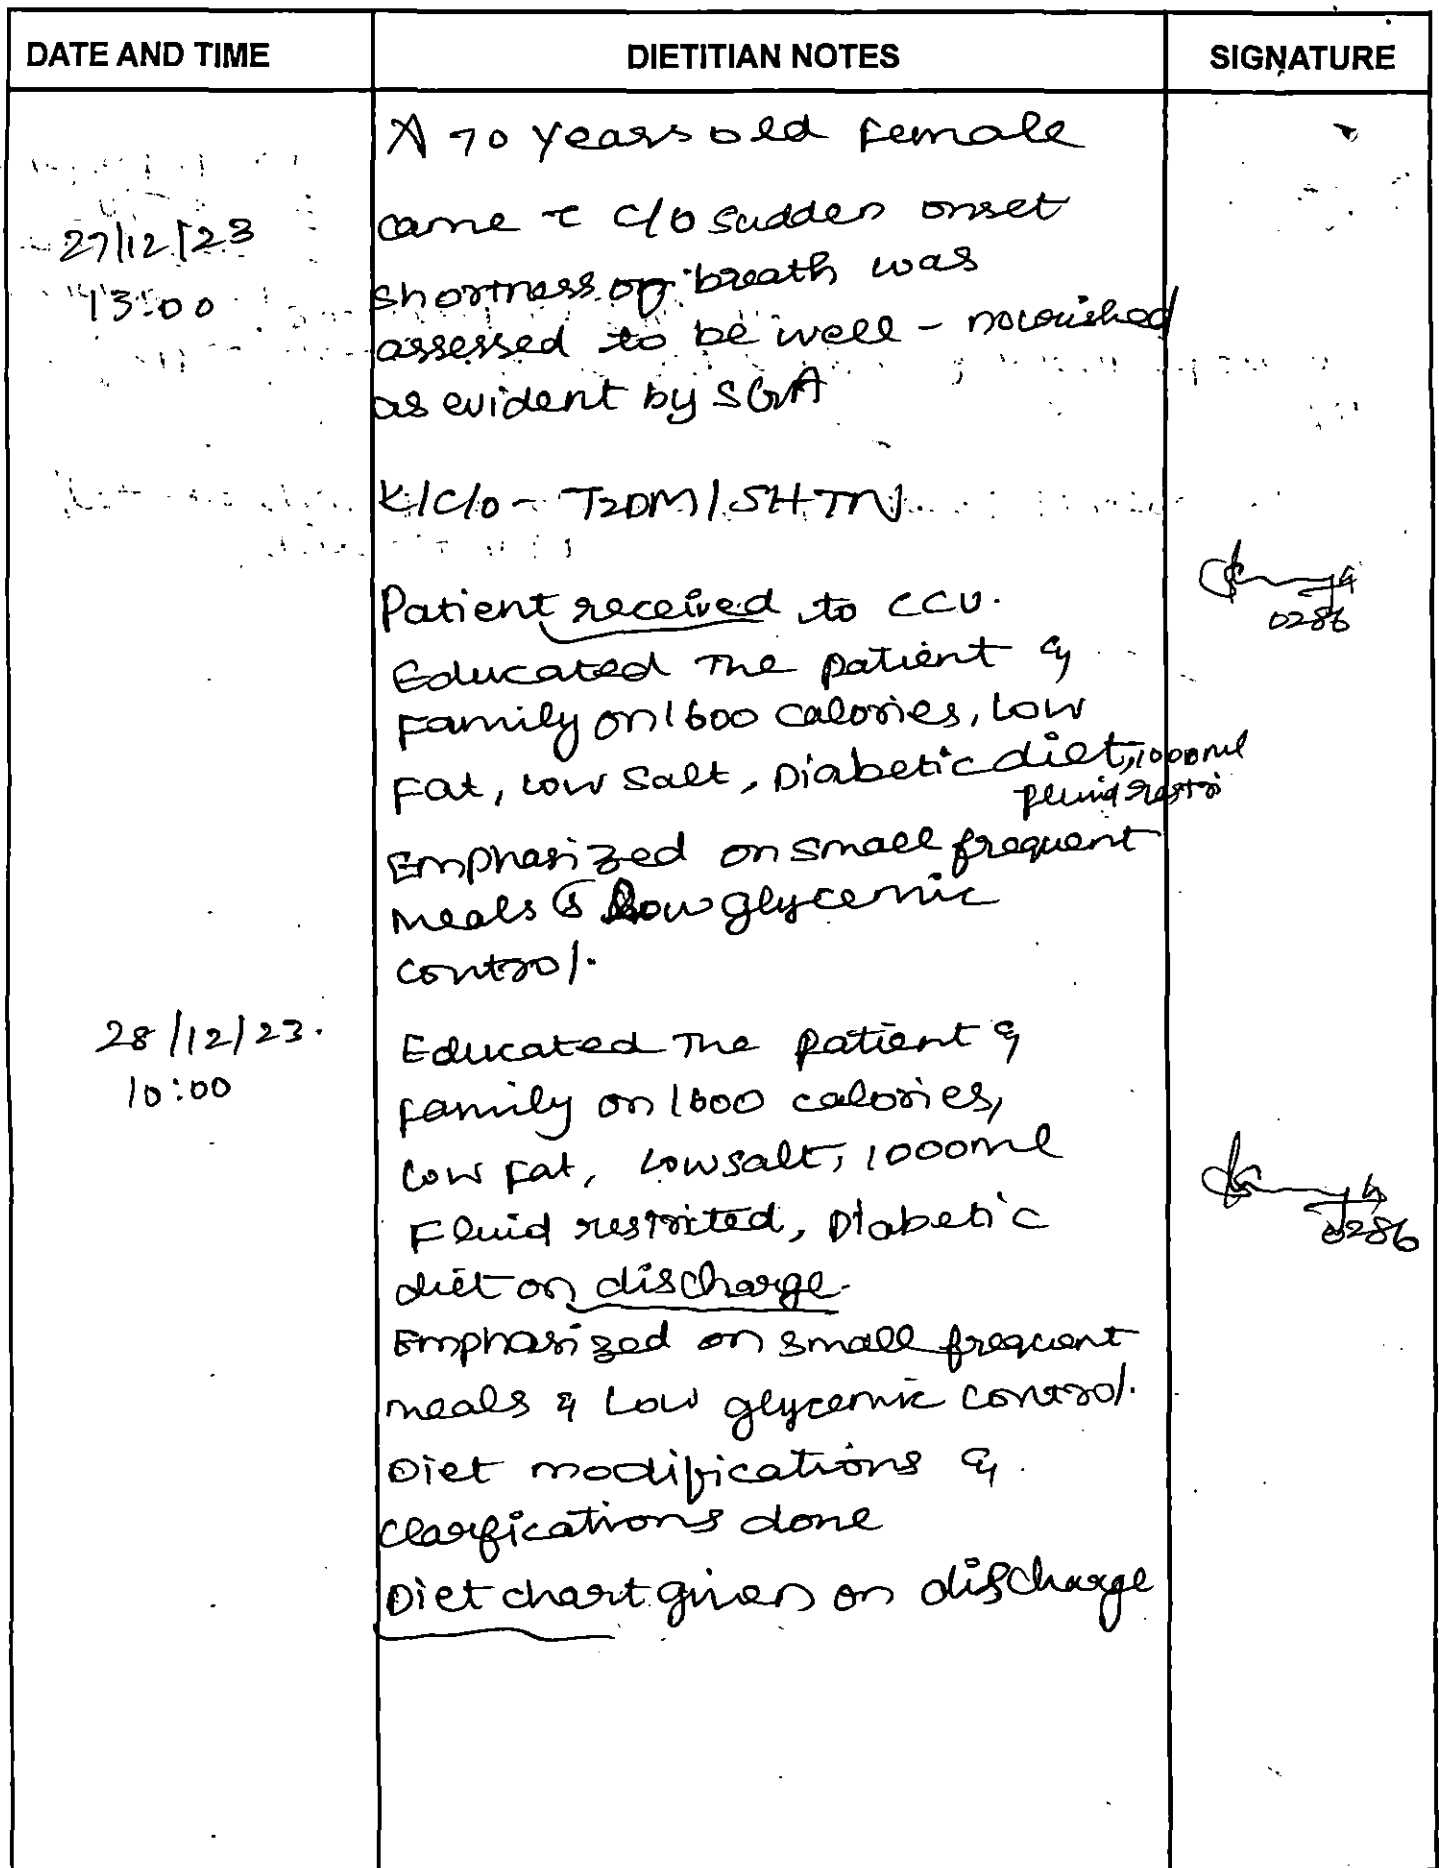 DATE AND TIME DIETITIAN NOTES SIGNATURE
A 70 years old female
27/12/23 came c c/o Sudden onset
13:00 shortness of breath was
assessed to be well - nourished
as evident by SGA
K/C/O - T2DM / SHTN
Patient received to CCU.
0286
Educated The patient &
Family on 1600 calories, Low
Fat, Low Salt, Diabetic diet, 1000ml
fluid restri
Emphasized on small frequent
meals & Low glycemic
control.
28/12/23. Educated The patient &
10:00 family on 1600 calories,
Low Fat, Low salt, 1000ml
Fluid restricted, Diabetic 0286
diet on discharge.
Emphasized on small frequent
meals & Low glycemic control.
Diet modifications &
clarfications done
Diet chart given on discharge